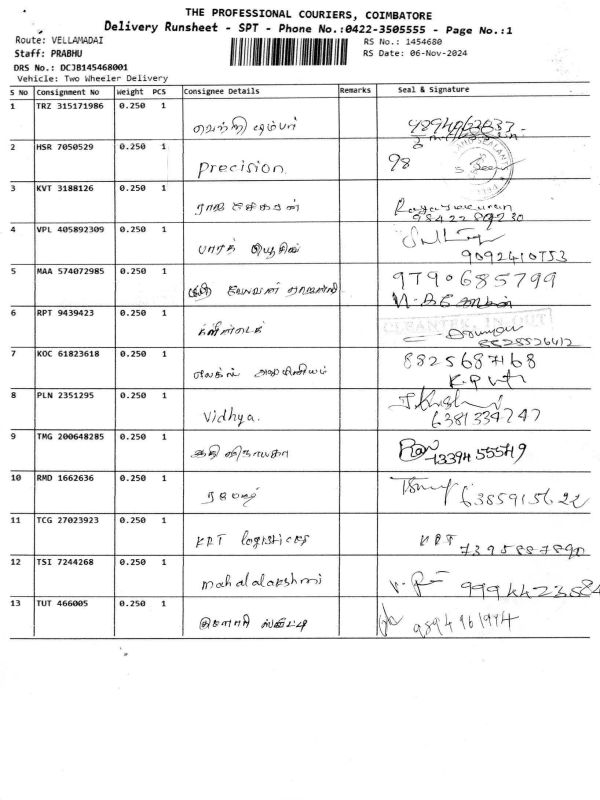 THE PROFESSIONAL COURIERS, COIMBATORE
Delivery Runsheet - SPT - Phone No.:0422-3505555 - Page No.:1
Route: VELLAMADAI
RS No.: 1454680
Staff: PRABHU
RS Date: 06-Nov-2024
DRS No.: DCJB145468001
Vehicle: Two Wheeler Delivery
S No Consignment No Weight PCS Consignee Details Remarks Seal & Signature
1 TRZ 315171986 0.250 1
வெற்றி டிம்பர்
2 HSR 7050529 0.250 1
Precision 98
3 KVT 3188126 0.250 1
ராஜ சேகரன்
4 VPL 405892309 0.250 1
பாரத் 9092410753
5 MAA 574072985 0.250 1 9790685799
6 RPT 9439423 0.250 1
CLEANTEK IN OUT
8828526412
7 KOC 61823618 0.250 1 8825687168
அலுமினியம்
8 PLN 2351295 0.250 1
Vidhya. 6381334247
9 TMG 200648285 0.250 1
ஆதி விநாயகா
10 RMD 1662636 0.250 1
ரமேஷ் 6385915622
11 TCG 27023923 0.250 1
KRT logistices KRT 7395887890
12 TSI 7244268 0.250 1
mahalalakshmi
13 TUT 466005 0.250 1
ஸ்வீட்டி 9894961994